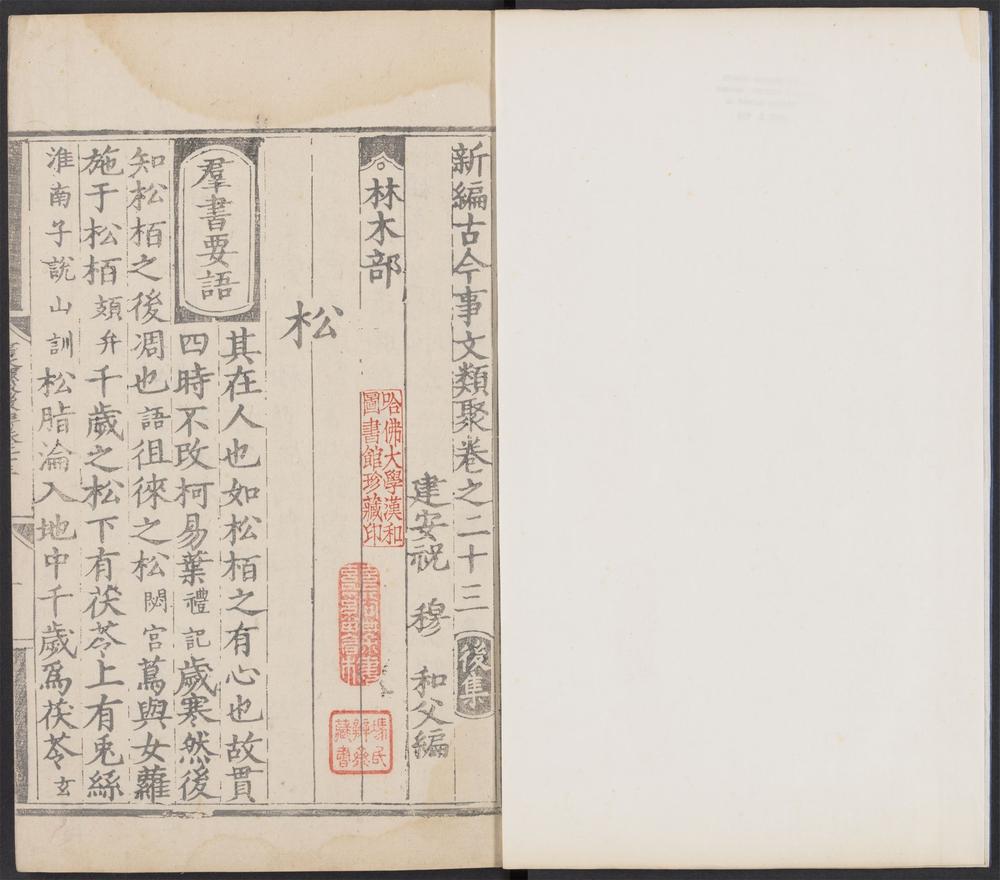 新編古今事文類聚卷之二十三 後集
建安祝 穆 和父編
林木部
松
羣書要語
其在人也如松栢之有心也故貫
四時不改柯易葉禮記歲寒然後
知松栢之後凋也語徂徠之松閟宮蔦與女蘿
施于松栢頍弁千歲之松下有茯苓上有兎絲
淮南子説山訓松脂淪入地中千歲爲茯苓玄
哈佛大學漢和
圖書館珍藏印
馮氏
辨齋
藏書